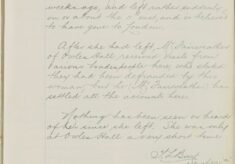 weeks ago, and left rather suddenly
on or about the inst, and is believed
to have gone to London.
After she had left, Mr Fairweather
of Oroles Hall received bills from
various tradespeople here who stated
they had been defrauded by this
woman, but he (Mr Fairweather) has
settled all the accounts here.
Nothing has been seen or heard
of her since she left. She was only
at Oroles Hall a very short time.